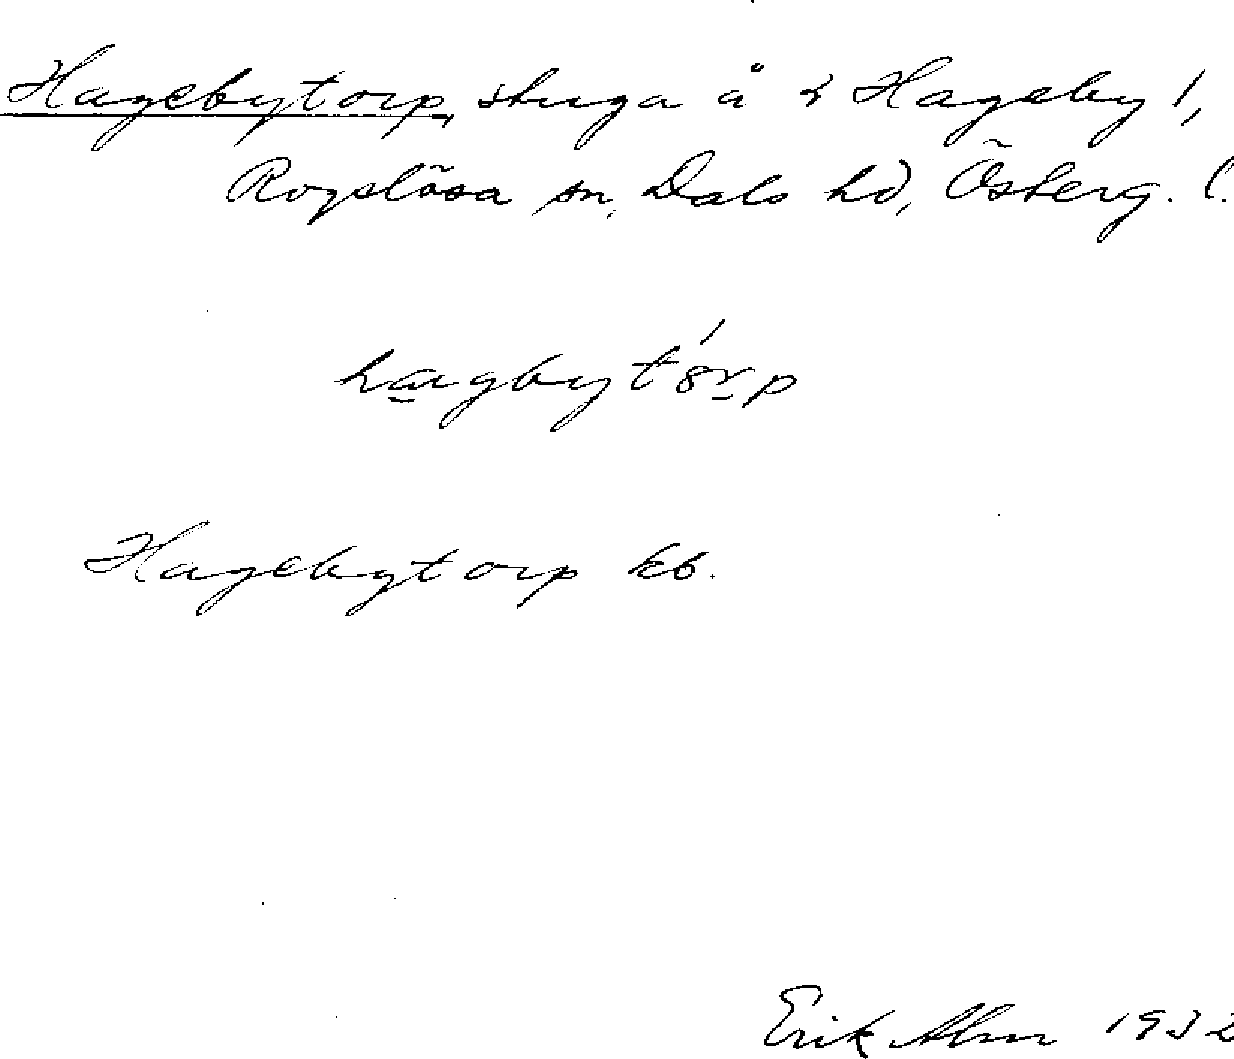 Hagebytorp, stuga å Hageby 1,
Rogslösa sn, Dals hd, Österg. l.
hagbytörp
Hagebytorp kb.
Erik Alm 1932